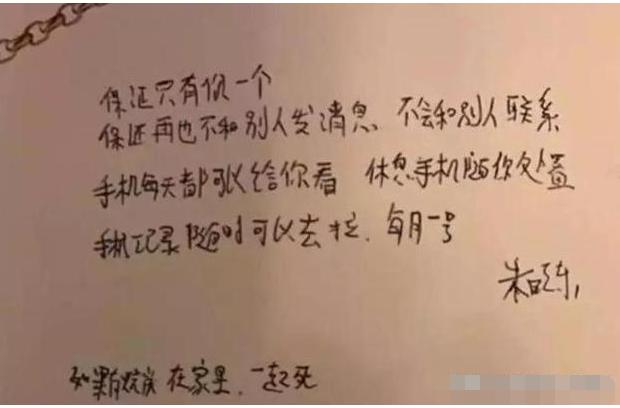 保证只有你一个
保证再也不和别人发消息 不会和别人联系
手机每天都可以给你看 休息手机随你处置
手机记录随时可以去 、每月一号
朱晓东
如果 在家里、一起死